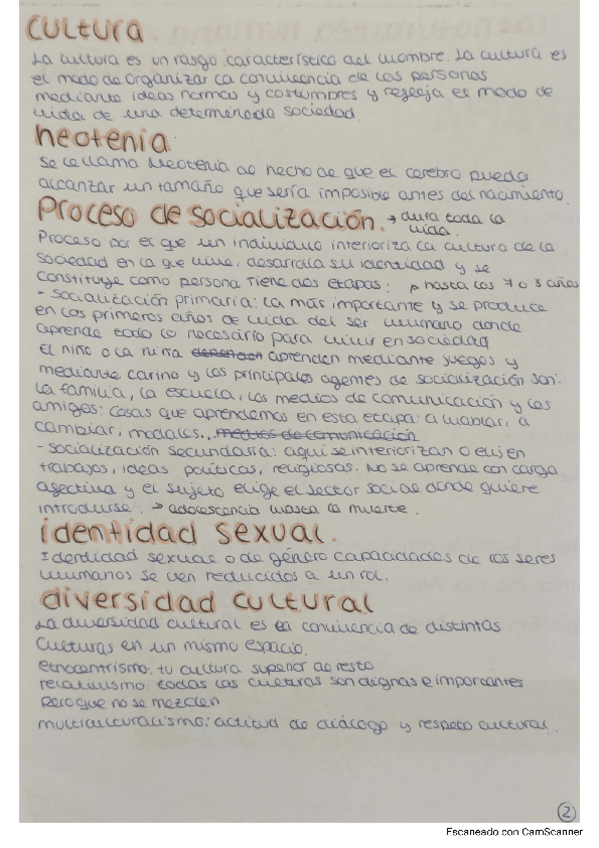 Cultura
La cultura es un rasgo característico del hombre. La cultura es
el modo de organizar la convivencia de las personas
mediante ideas normas y costumbres y refleja el modo de
vida de una determinada sociedad
neotenia
Se le llama Neotenia al hecho de que el cerebro pueda
alcanzar un tamaño que sería imposible antes del nacimiento.
Proceso de socialización. → dura toda la
vida.
Proceso por el que un individuo interioriza la cultura de la
sociedad en la que vive, desarrolla su identidad y se
constituye como persona Tiene dos etapas: hasta los 7 o 8 años
- Socialización primaria: la más importante y se produce
en los primeros años de vida del ser humano donde
aprende todo lo necesario para vivir en sociedad
El niño o la niña aprenden mediante juegos y
mediante cariño y los principales agentes de socialización son:
la familia, la escuela, los medios de comunicación y los
amigos: cosas que aprendemos en esta etapa: a hablar, a
cambiar, modales... medios de comunicación
- Socialización secundaria: aquí se interiorizan o eligen
trabajos, ideas políticas, religiosas. No se aprende con carga
afectiva y el sujeto elige el sector social donde quiere
introdurse. → adolescencia hasta la muerte.
identidad sexual.
Identidad sexual o de género capacidades de los seres
humanos se ven reducidos a un rol.
diversidad cultural
La diversidad cultural es la convivencia de distintas
culturas en un mismo espacio.
etnocentrismo: tu cultura superior al resto
relativismo: todas las culturas son dignas e importantes
pero que no se mezclen
multiculturalismo: actitud de diálogo y respeto cultural.
2
Escaneado con CamScanner